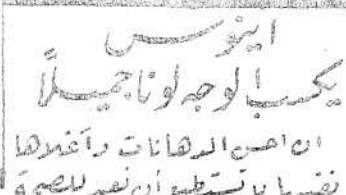 اينوس
يكسب الوجه لونا جميلاً
ان احسن الدهانات وأغلاها
نفسها لا تستطيع أن تعيد للصحة